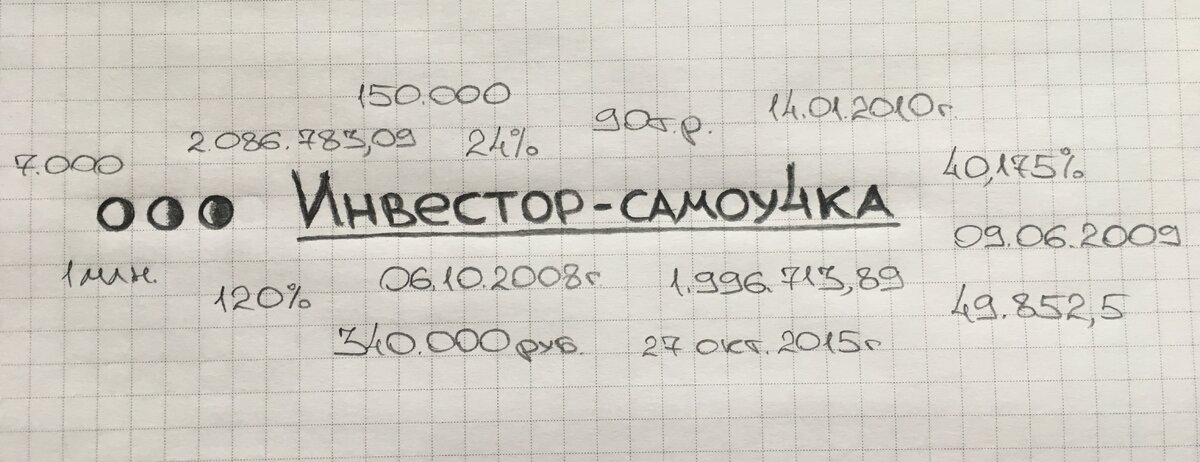 150.000
14.01.2010г.
90т.р.
2.086.783,09 24%
7.000
40,175%
Инвестор-самоучка
09.06.2009
1 млн.
06.10.2008г
1.996.713,89
120%
49.852,5
340.000 руб. 27 окт. 2015г